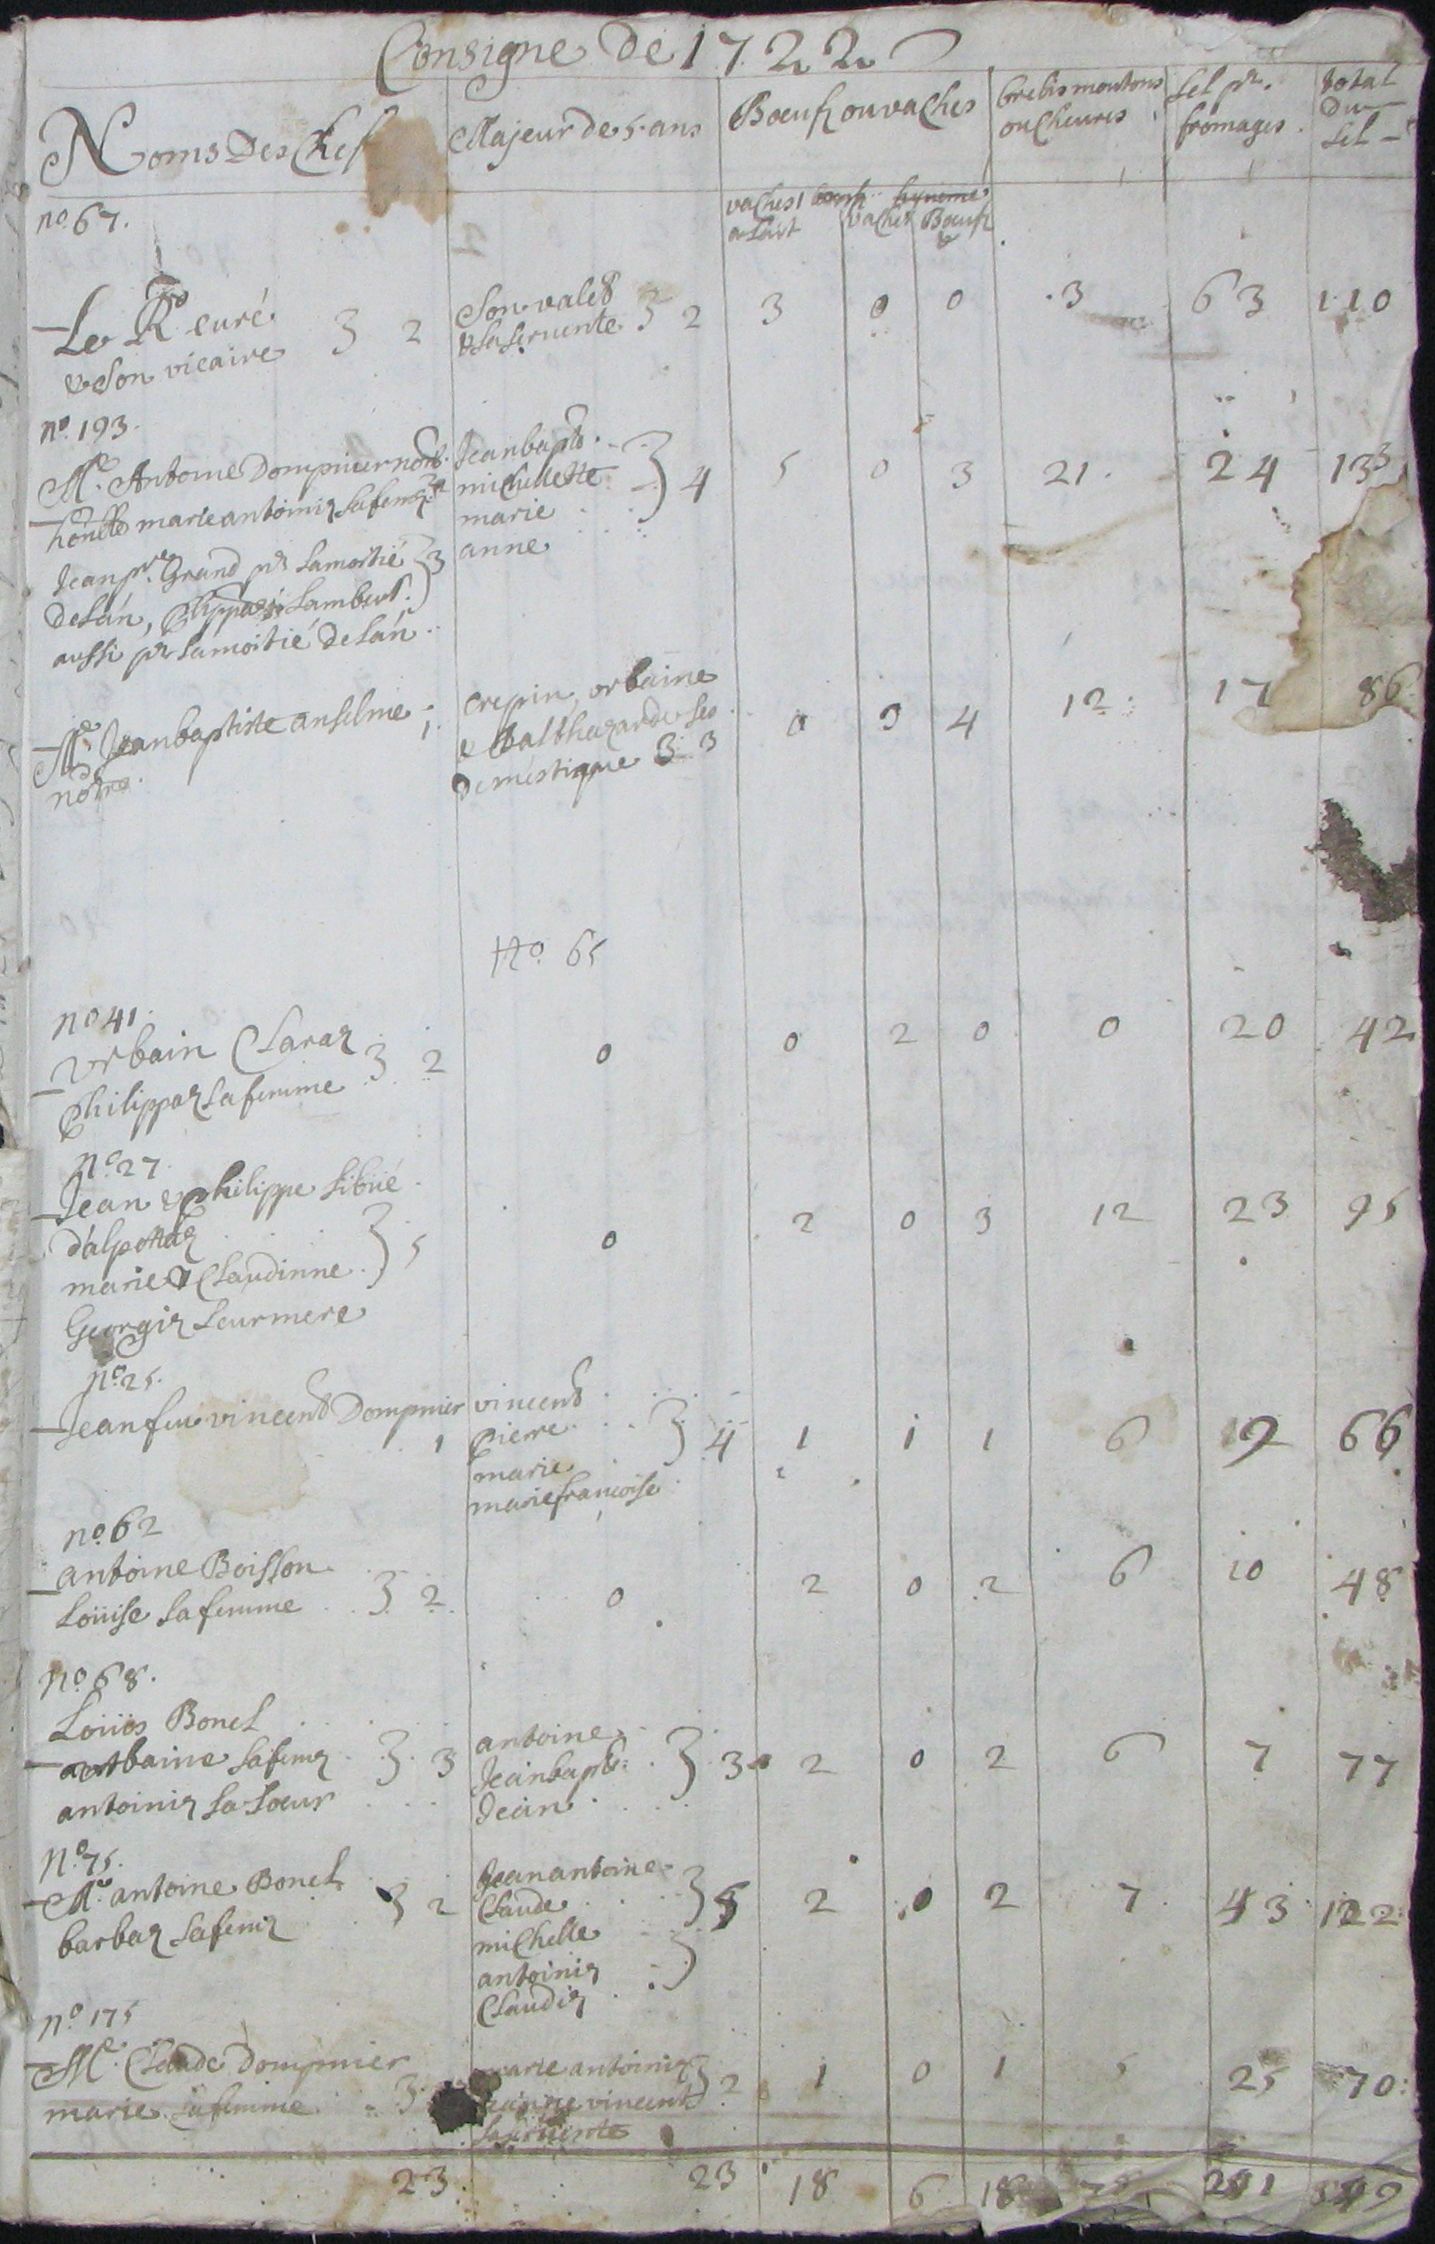 Consigne de 1722
Noms Des Chef Majeur de 5 ans Boeufs ou vaches brebis moutons ou cheures sel pr. fromages total du sel
vaches a lait vaches Boeufs
no. 67.
Le Rd curé & son vicaire 3 2 Son valet & sa seruente 3 2 3 0 0 3 63 110
no. 193.
Me. Antoine Dompnier nore. Jean bapte.
honeste marie antoinia sa feme michelette 4 5 0 3 21. 24 133
marie
Jean pre. Grand pr la moitié 3 anne
de l'an, Lambert
aussi pr la moitié de l'an
Me. Jean baptiste anselme 1 crepin, urbaine 0 3 4 12. 17 86
notre. & Balthazarde ses
domestique 3 3
No. 65
no 41.
Urbain Claraz 3 2 0 0 2 0 0 20 42
Philippaz sa femme
no. 27.
Jean & Philippe Sibué
d'alpettaz 5 0 2 0 3 12 23 95
marie & Claudinne
Georgia leur mere
no. 25.
Jean feu vincent Dompnier 1 vincent
pierre 4 1 1 1 6 19 66
marie
marie francoise
no. 62
antoine Boisson
Loüise sa femme 3 2 0 2 0 2 6 10 48
no. 68.
Loüis Bonel antoine
urbaine sa feme 3 3 Jean bapte. 3 3 2 0 2 6 7 77
antoinia sa soeur Jean
No. 75.
Me. antoine Bonel 3 2 Jean antoine
barbaz sa feme Claude 5 2 0 2 7 43 122
michelle
antoinia
Claudia
no. 175
Me. Claude Dompnier marie antoinia 2 1 0 1 5 25 70
marie sa femme 3 vincent
sa seruente
23 23 18 6 18